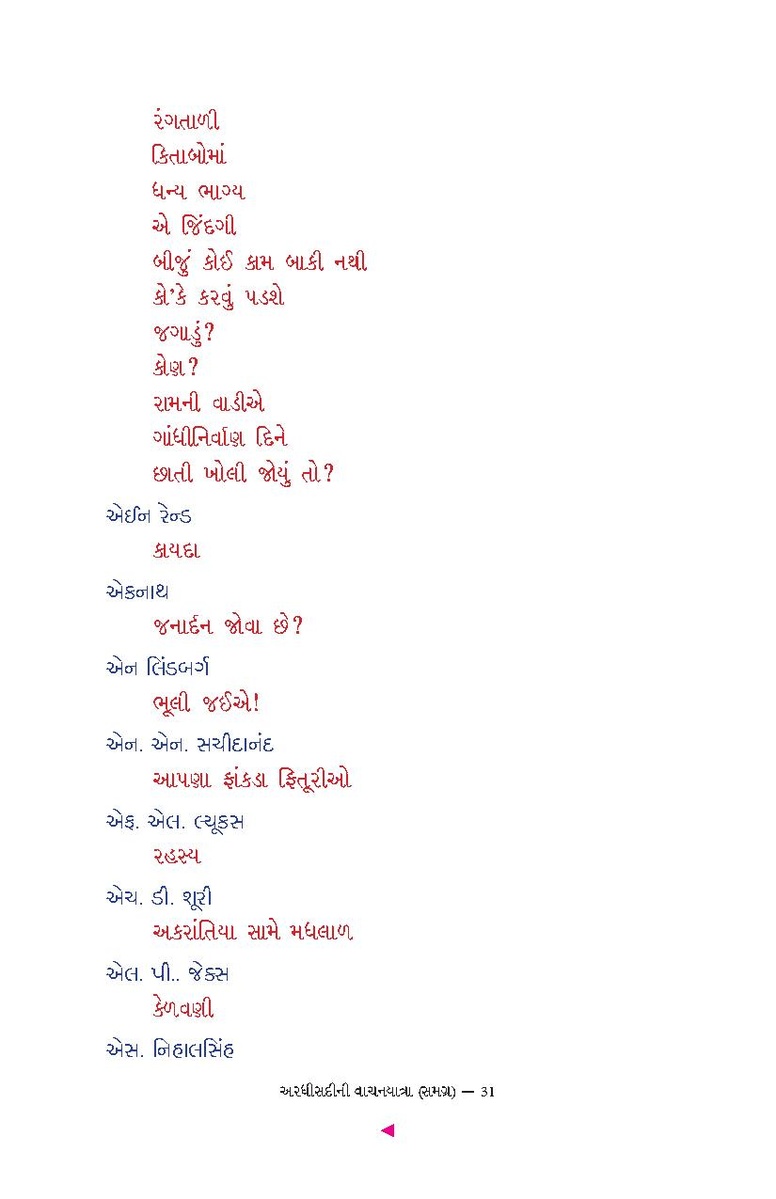 રંગતાળી
કિતાબોમાં
ધન્ય ભાગ્ય
એ જિંદગી
બીજું કોઈ કામ બાકી નથી
કો’કે કરવું પડશે
જગાડું?
કોણ?
રામની વાડીએ
ગાંધીનિર્વાણ દિને
છાતી ખોલી જોયું તો?
એઈન રેન્ડ
કાયદા
એકનાથ
જનાર્દન જોવા છે?
એન લિંડબર્ગ
ભૂલી જઈએ!
એન. એન. સચીદાનંદ
આપણા ફાંકડા ફિતૂરીઓ
એફ. એલ. લ્યૂકસ
રહસ્ય
એચ. ડી. શૂરી
અકરાંતિયા સામે મધલાળ
એલ. પી.. જેક્સ
કેળવણી
એસ. નિહાલસિંહ
અરધીસદીની વાચનયાત્રા (સમગ્ર) — 31